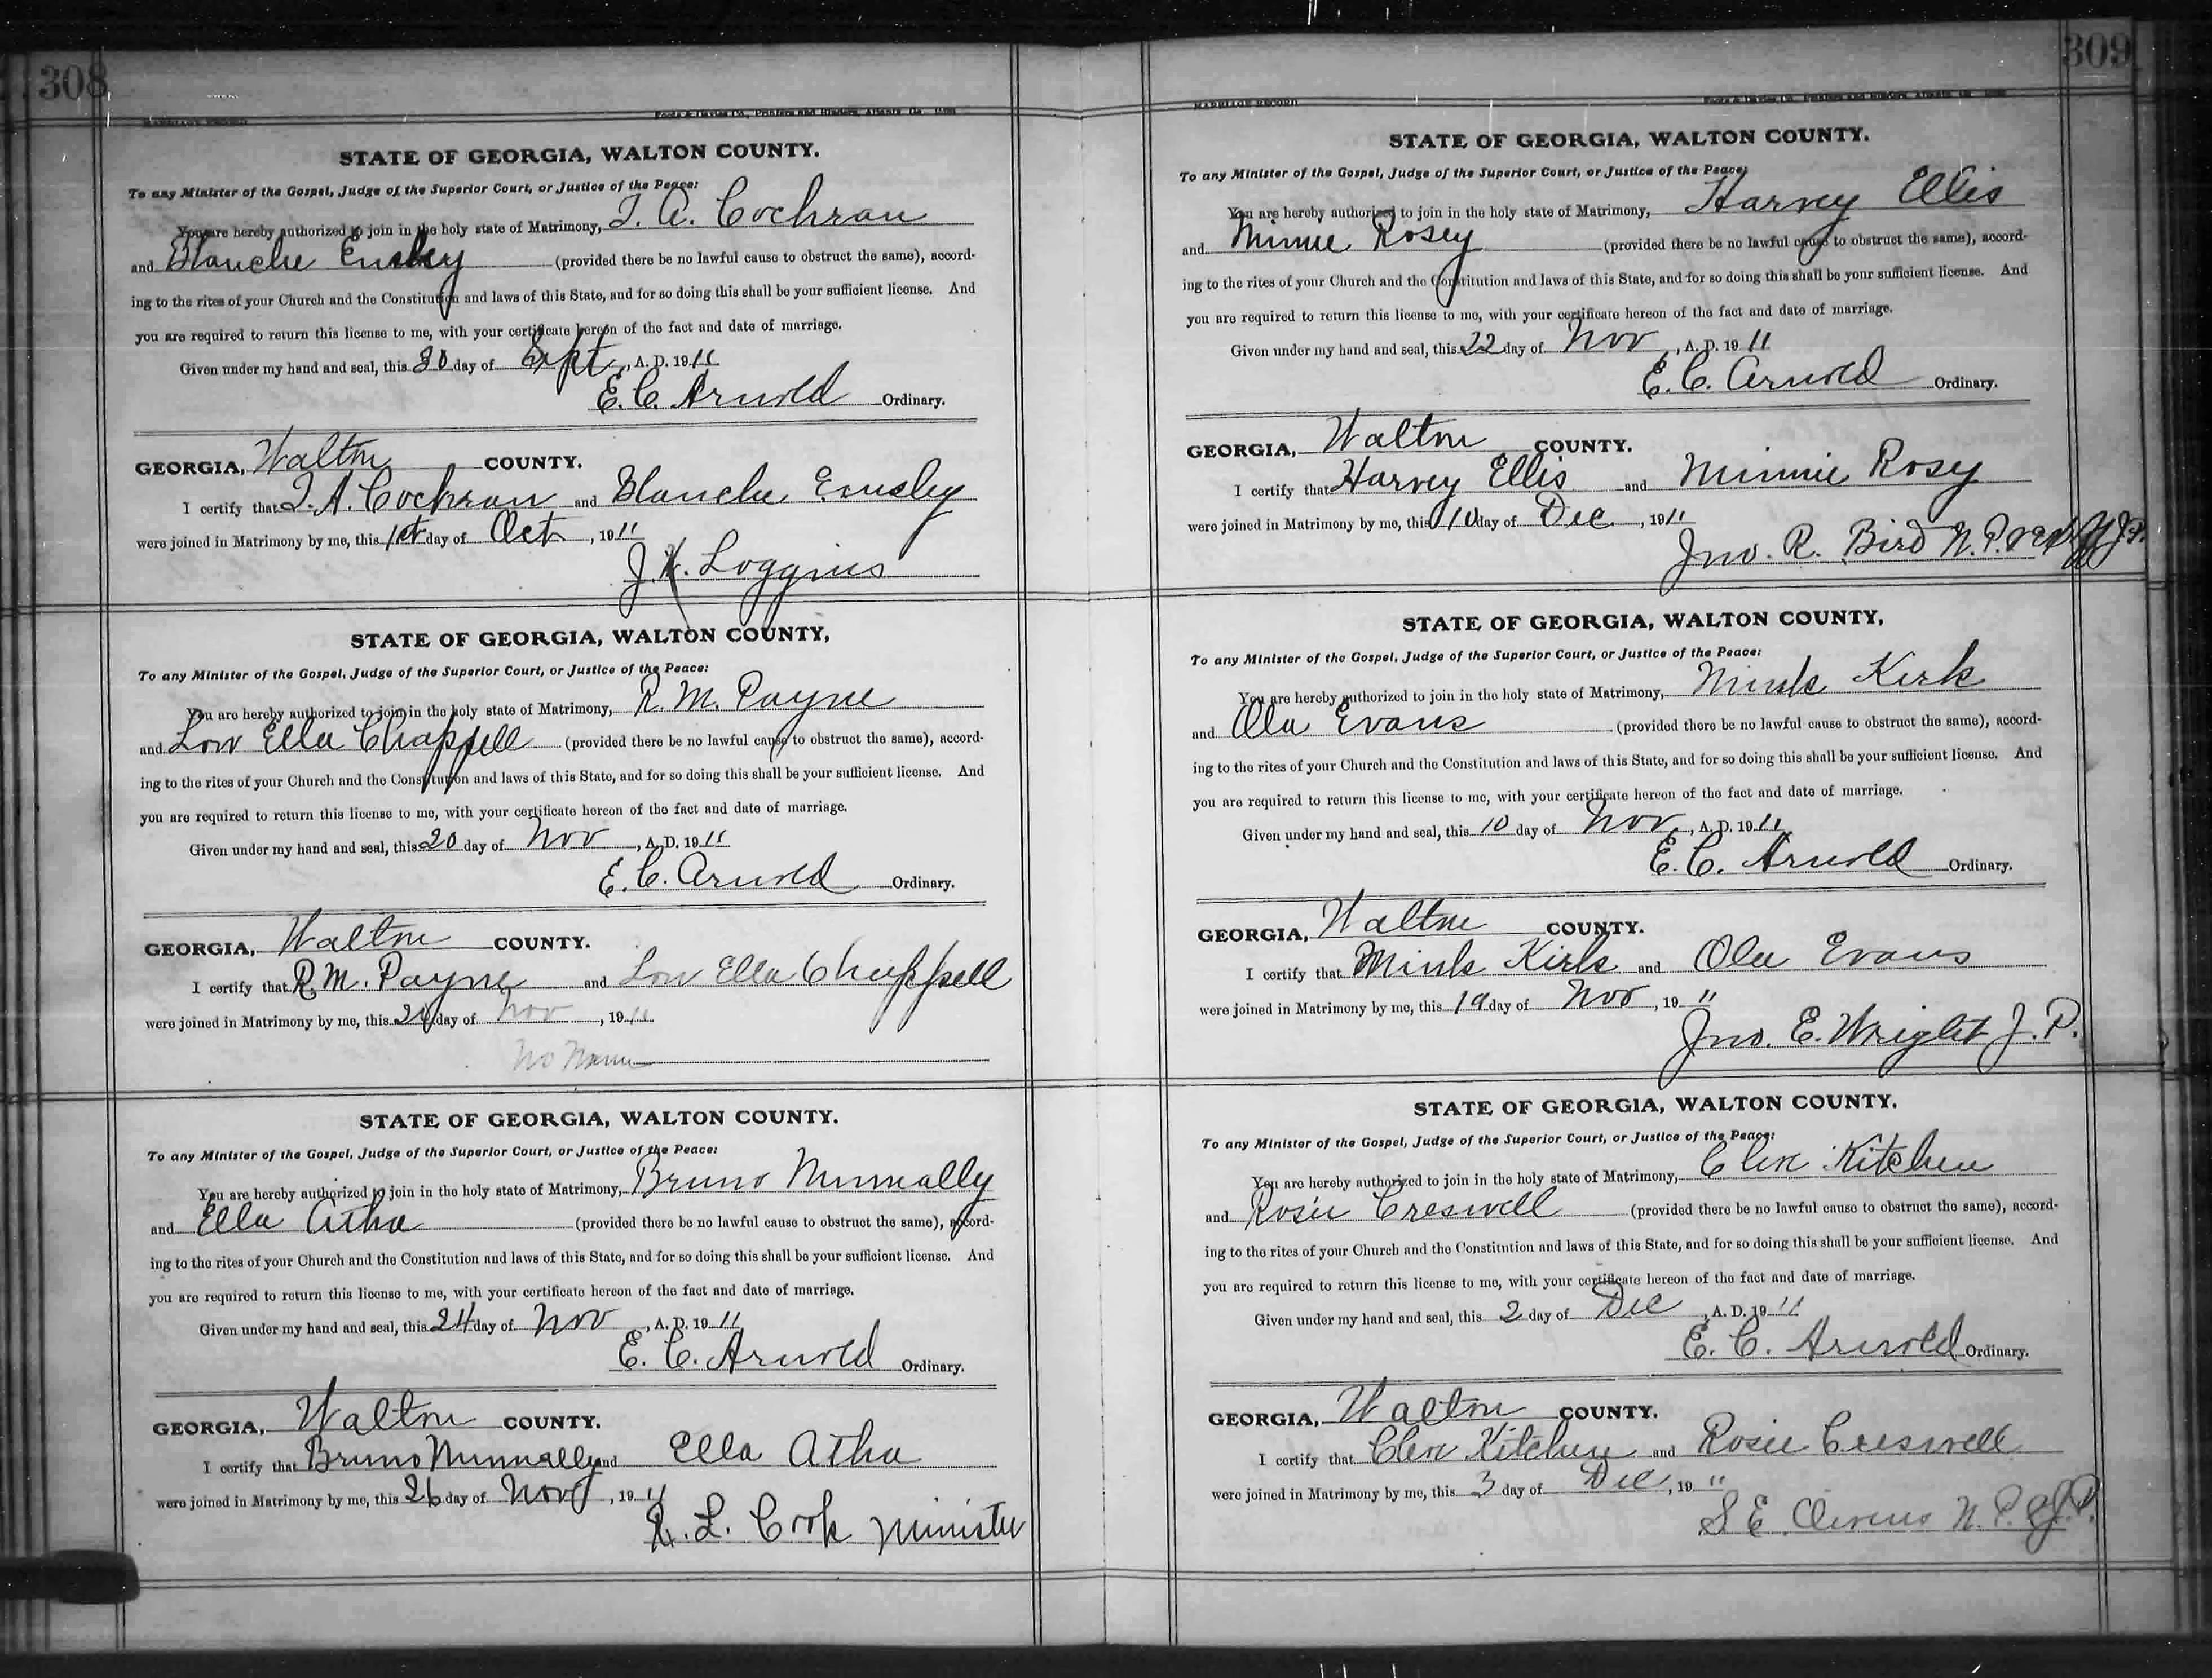 308
MARRIAGE RECORD Foote & Davies Co., Printers and Binders, Atlanta, Ga.
STATE OF GEORGIA, WALTON COUNTY.
To any Minister of the Gospel, Judge of the Superior Court, or Justice of the Peace:
You are hereby authorized to join in the holy state of Matrimony, J. A. Cochran
and Blanche Emsley (provided there be no lawful cause to obstruct the same), accord-
ing to the rites of your Church and the Constitution and laws of this State, and for so doing this shall be your sufficient license. And
you are required to return this license to me, with your certificate hereon of the fact and date of marriage.
Given under my hand and seal, this 30 day of Sept, A. D. 1911
E. C. Arnold Ordinary.
GEORGIA, Walton COUNTY.
I certify that J. A. Cochran and Blanche Emsley
were joined in Matrimony by me, this 1st day of Oct, 1911
J. H. Loggins
STATE OF GEORGIA, WALTON COUNTY,
To any Minister of the Gospel, Judge of the Superior Court, or Justice of the Peace:
You are hereby authorized to join in the holy state of Matrimony, R. M. Payne
and Lou Ella Chappell (provided there be no lawful cause to obstruct the same), accord-
ing to the rites of your Church and the Constitution and laws of this State, and for so doing this shall be your sufficient license. And
you are required to return this license to me, with your certificate hereon of the fact and date of marriage.
Given under my hand and seal, this 20 day of Nov, A. D. 1911
E. C. Arnold Ordinary.
GEORGIA, Walton COUNTY.
I certify that R. M. Payne and Lou Ella Chappell
were joined in Matrimony by me, this day of Nov, 1911
No Name
STATE OF GEORGIA, WALTON COUNTY.
To any Minister of the Gospel, Judge of the Superior Court, or Justice of the Peace:
You are hereby authorized to join in the holy state of Matrimony, Bruno Nunnally
and Ella Atha (provided there be no lawful cause to obstruct the same), accord-
ing to the rites of your Church and the Constitution and laws of this State, and for so doing this shall be your sufficient license. And
you are required to return this license to me, with your certificate hereon of the fact and date of marriage.
Given under my hand and seal, this 24 day of Nov, A. D. 1911
E. C. Arnold Ordinary.
GEORGIA, Walton COUNTY.
I certify that Bruno Nunnally and Ella Atha
were joined in Matrimony by me, this 26 day of Nov, 1911
R. L. Cook Minister
309
MARRIAGE RECORD Foote & Davies Co., Printers and Binders, Atlanta, Ga.
STATE OF GEORGIA, WALTON COUNTY.
To any Minister of the Gospel, Judge of the Superior Court, or Justice of the Peace:
You are hereby authorized to join in the holy state of Matrimony, Harvey Ellis
and Minnie Rosey (provided there be no lawful cause to obstruct the same), accord-
ing to the rites of your Church and the Constitution and laws of this State, and for so doing this shall be your sufficient license. And
you are required to return this license to me, with your certificate hereon of the fact and date of marriage.
Given under my hand and seal, this 22 day of Nov, A. D. 1911
E. C. Arnold Ordinary.
GEORGIA, Walton COUNTY.
I certify that Harvey Ellis and Minnie Rosey
were joined in Matrimony by me, this 10 day of Dec., 1911
Jno. R. Bird N. P. & Ex Off J. P.
STATE OF GEORGIA, WALTON COUNTY,
To any Minister of the Gospel, Judge of the Superior Court, or Justice of the Peace:
You are hereby authorized to join in the holy state of Matrimony, Mink Kirk
and Ola Evans (provided there be no lawful cause to obstruct the same), accord-
ing to the rites of your Church and the Constitution and laws of this State, and for so doing this shall be your sufficient license. And
you are required to return this license to me, with your certificate hereon of the fact and date of marriage.
Given under my hand and seal, this 10 day of Nov, A. D. 1911
E. C. Arnold Ordinary.
GEORGIA, Walton COUNTY.
I certify that Mink Kirk and Ola Evans
were joined in Matrimony by me, this 19 day of Nov, 19 11
Jno. E. Wright J. P.
STATE OF GEORGIA, WALTON COUNTY.
To any Minister of the Gospel, Judge of the Superior Court, or Justice of the Peace:
You are hereby authorized to join in the holy state of Matrimony, Clem Kitchen
and Rosie Creswell (provided there be no lawful cause to obstruct the same), accord-
ing to the rites of your Church and the Constitution and laws of this State, and for so doing this shall be your sufficient license. And
you are required to return this license to me, with your certificate hereon of the fact and date of marriage.
Given under my hand and seal, this 2 day of Dec, A. D. 19 11
E. C. Arnold Ordinary.
GEORGIA, Walton COUNTY.
I certify that Clem Kitchen and Rosie Creswell
were joined in Matrimony by me, this 3 day of Dec, 19 11
S E N. P. & J. P.